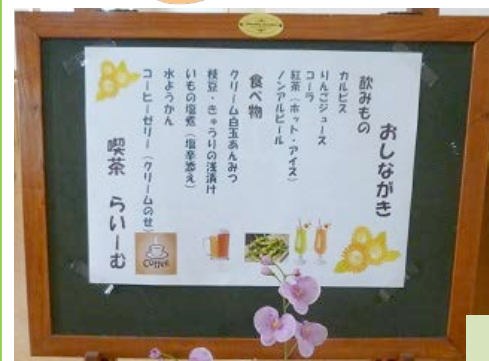 おしながき
飲みもの
カルピス
りんごジュース
コーラ
紅茶（ホット・アイス）
ノンアルビール
食べ物
クリーム白玉あんみつ
枝豆・きゅうりの浅漬け
いもの塩煮（塩辛添え）
水ようかん
コーヒーゼリー（クリームのせ）
喫茶　らいーむ
COFFEE